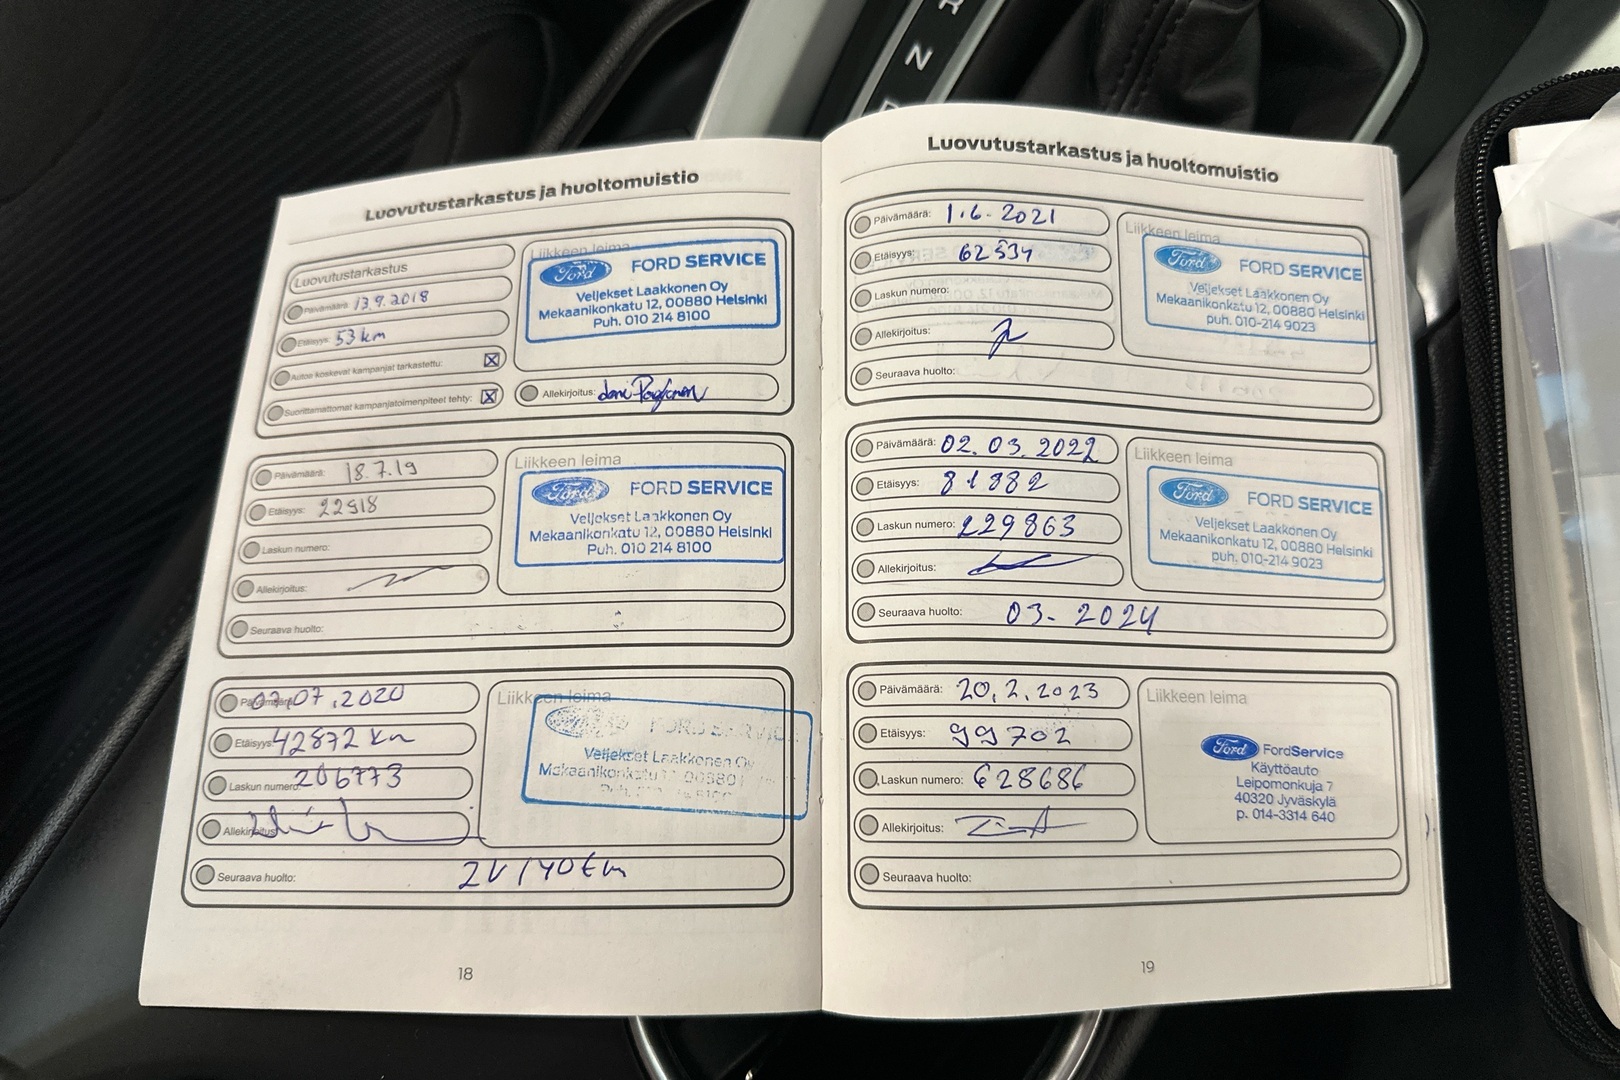 N
Luovutustarkastus ja huoltomuistio
Luovutustarkastus
Päivämäärä: 13.9.2018
Etäisyys: 53 km
Autoa koskevat kampanjat tarkastettu: X
Suorittamattomat kampanjatoimenpiteet tehty: X
Liikkeen leima
Ford FORD SERVICE
Veljekset Laakkonen Oy
Mekaanikonkatu 12, 00880 Helsinki
Puh. 010 214 8100
Allekirjoitus:
Päivämäärä: 18.7.19
Etäisyys: 22918
Laskun numero:
Allekirjoitus:
Seuraava huolto:
Liikkeen leima
Ford FORD SERVICE
Veljekset Laakkonen Oy
Mekaanikonkatu 12, 00880 Helsinki
Puh. 010 214 8100
Päivämäärä: 07.07.2020
Etäisyys: 42872 km
Laskun numero: 206773
Allekirjoitus:
Seuraava huolto: 2V/40tkm
Liikkeen leima
FORD SERVICE
Veljekset Laakkonen Oy
Mekaanikonkatu
18
Luovutustarkastus ja huoltomuistio
Päivämäärä: 1.6.2021
Etäisyys: 62534
Laskun numero:
Allekirjoitus:
Seuraava huolto:
Liikkeen leima
Ford FORD SERVICE
Veljekset Laakkonen Oy
Mekaanikonkatu 12, 00880 Helsinki
puh. 010-214 9023
Päivämäärä: 02.03.2022
Etäisyys: 81882
Laskun numero: 229863
Allekirjoitus:
Seuraava huolto: 03.2024
Liikkeen leima
Ford FORD SERVICE
Veljekset Laakkonen Oy
Mekaanikonkatu 12, 00880 Helsinki
puh. 010-214 9023
Päivämäärä: 20.2.2023
Etäisyys: 99702
Laskun numero: 628686
Allekirjoitus:
Seuraava huolto:
Liikkeen leima
Ford FordService
Käyttöauto
Leipomonkuja 7
40320 Jyväskylä
p. 014-3314 640
19